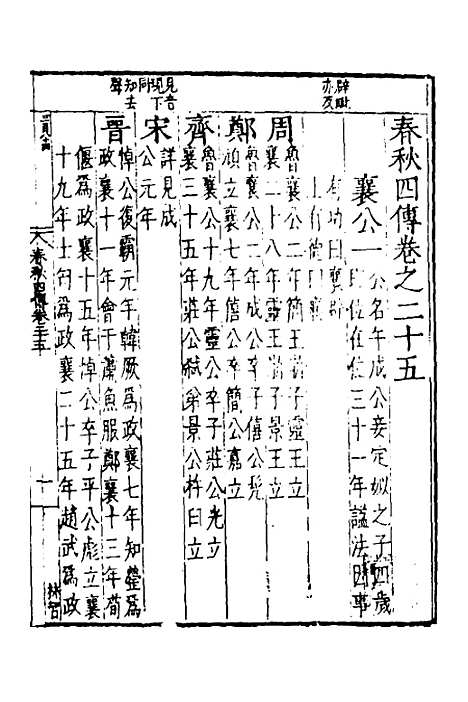 春秋四傳卷之二十五
襄公一
公名午成公妾定姒之子四歲
即位在位三十一年諡法因事
有功曰襄辟
土有德曰襄
周
魯襄公二年簡王崩子靈王立
襄二十八年靈王崩子景王立
鄭
魯襄公二年成公卒子僖公髡
頑立襄七年僖公卒簡公嘉立
齊
魯襄公十九年靈公卒子莊公光立
襄二十五年莊公弒弟景公杵臼立
宋
詳見成
公元年
晉
悼公復霸元年韓厥為政襄七年知罃為
政襄十一年會于蕭魚服鄭襄十三年荀
偃為政襄十五年悼公卒子平公彪立襄
十九年士匄為政襄二十五年趙武為政
辟毗
亦反
見音
現下
同
知去
聲
春秋四傳卷二十五
一
林智